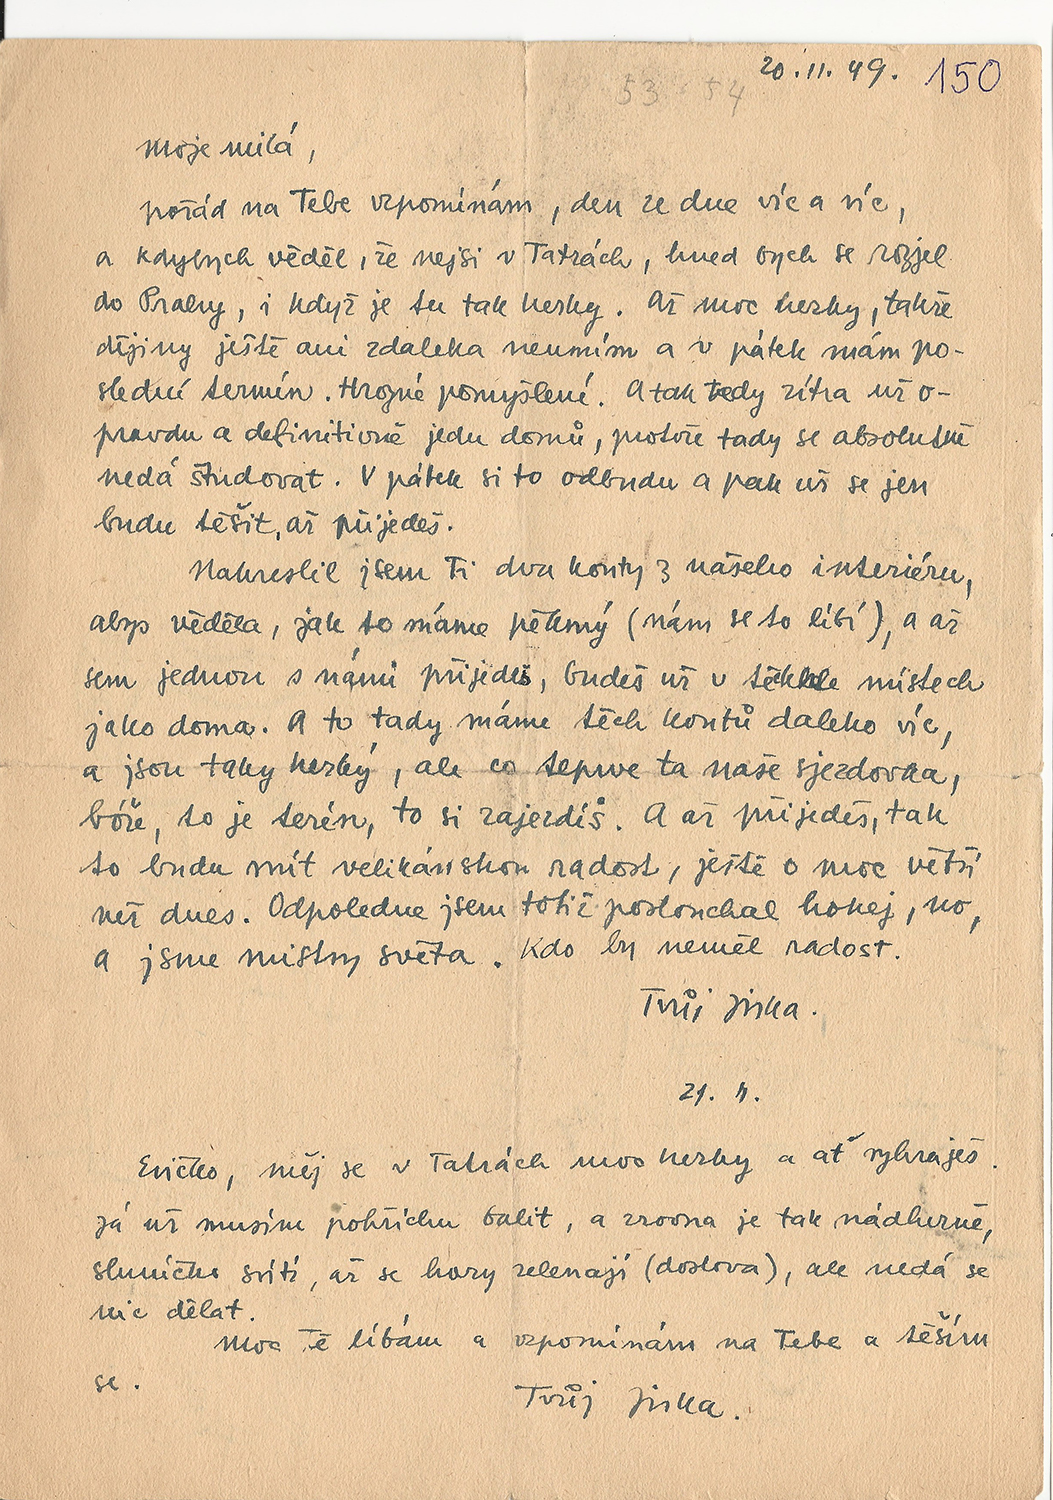 20.II.49. 150
53 54
Moje milá,
pořád na Tebe vzpomínám, den ze dne víc a víc,
a kdybych věděl, že nejsi v Tatrách, hned bych se rozjel
do Prahy, i když je tu tak hezky. Až moc hezky, takže
dějiny ještě ani zdaleka neumím a v pátek mám po-
slední termín. Hrozné pomyšlení. A tak tedy zítra už o-
pravdu a definitivně jedu domů, protože tady se absolutně
nedá študovat. V pátek si to odbudu a pak už se jen
budu těšit, až přijedeš.
Nakreslil jsem Ti dva kouty z našeho interiéru,
abys věděla, jak to máme pěkný (nám se to líbí), a až
sem jednou s námi přijedeš, budeš už v těchhle místech
jako doma. A to tady máme těch koutů daleko víc,
a jsou taky hezký, ale co teprve ta naše sjezdovka,
bóže, to je terén, to si zajezdíš. A až přijedeš, tak
to budu mít velikánskou radost, ještě o moc větší
než dnes. Odpoledne jsem totiž poslouchal hokej, no,
a jsme mistry světa. Kdo by neměl radost.
Tvůj Jirka.
21. II.
Evičko, měj se v Tatrách moc hezky a ať vyhraješ.
Já už musím pohříchu balit, a zrovna je tak nádherně,
sluníčko svítí, až se hory zelenají (doslova), ale nedá se
nic dělat.
Moc Tě líbám a vzpomínám na Tebe a těším
se.
Tvůj Jirka.